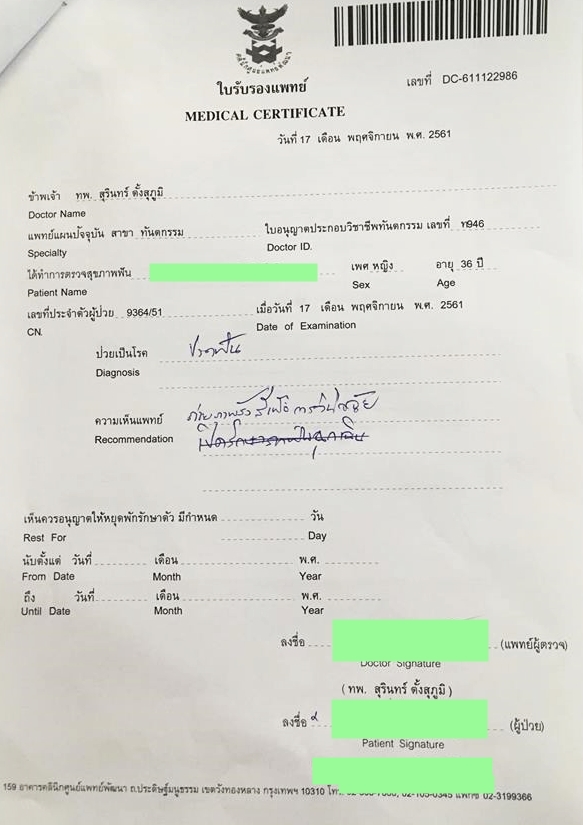 ใบรับรองแพทย์
เลขที่ DC-611122986
MEDICAL CERTIFICATE
วันที่ 17 เดือน พฤศจิกายน พ.ศ. 2561
ข้าพเจ้า ทพ. สุรินทร์ ตั้งสุภูมิ
Doctor Name
แพทย์แผนปัจจุบัน สาขา ทันตกรรม ใบอนุญาตประกอบวิชาชีพทันตกรรม เลขที่ ท946
Specialty Doctor ID.
ได้ทำการตรวจสุขภาพฟัน เพศ หญิง อายุ 36 ปี
Patient Name Sex Age
เลขที่ประจำตัวผู้ป่วย 9364/51 เมื่อวันที่ 17 เดือน พฤศจิกายน พ.ศ. 2561
CN. Date of Examination
ป่วยเป็นโรค ปวดฟัน
Diagnosis
ความเห็นแพทย์ ถ่ายภาพรังสีเพื่อการวินิจฉัย
Recommendation
เห็นควรอนุญาตให้หยุดพักรักษาตัว มีกำหนด วัน
Rest For Day
นับตั้งแต่ วันที่ เดือน พ.ศ.
From Date Month Year
ถึง วันที่ เดือน พ.ศ.
Until Date Month Year
ลงชื่อ (แพทย์ผู้ตรวจ)
Doctor Signature
( ทพ. สุรินทร์ ตั้งสุภูมิ )
ลงชื่อ (ผู้ป่วย)
Patient Signature
159 อาคารคลินิกศูนย์แพทย์พัฒนา ถ.ประดิษฐ์มนูธรรม เขตวังทองหลาง กรุงเทพฯ 10310 โทร. 02-105-0345 แฟกซ์ 02-3199366